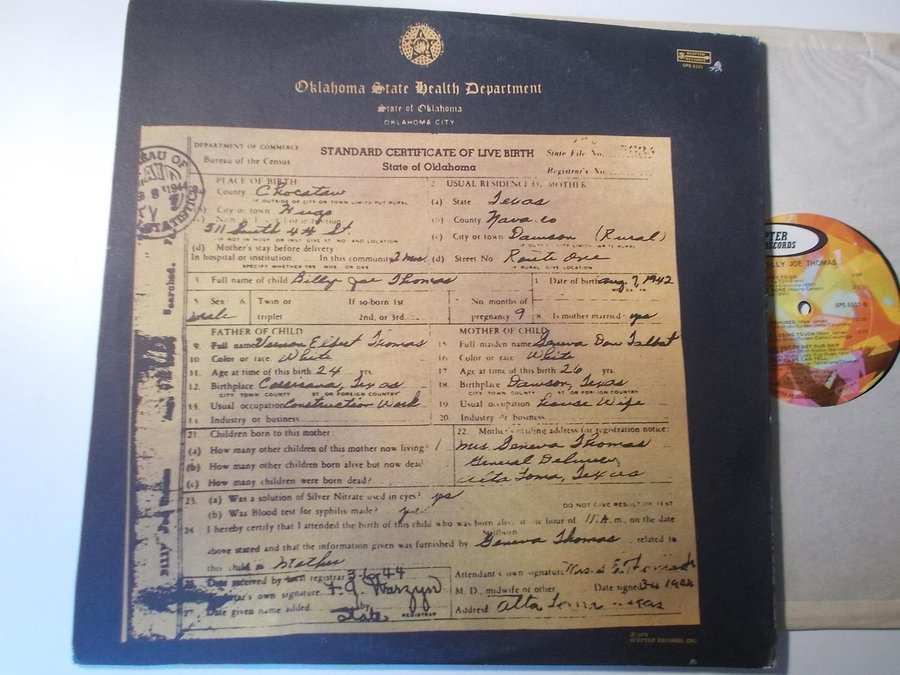 Oklahoma State Health Department
State of Oklahoma
OKLAHOMA CITY
SCEPTER RECORDS
SPS 5101
DEPARTMENT OF COMMERCE
Bureau of the Census
STANDARD CERTIFICATE OF LIVE BIRTH
State of Oklahoma
State File No.
Registrar's No.
PLACE OF BIRTH
County Chocataw
IF OUTSIDE OF CITY OR TOWN LIMITS PUT RURAL
City or town Hugo
511 South 4th St.
IF NOT IN HOSP OR INST GIVE ST NO AND LOCATION
(d) Mother's stay before delivery:
In hospital or institution. In this community 2 mos.
SPECIFY WHETHER YRS MOS OR DAS
2 USUAL RESIDENCE OF MOTHER
(a) State Texas
(b) County Navaro
(c) City or town Dawson (Rural)
(d) Street No Route One
IF RURAL GIVE LOCATION
Full name of child Billy Joe Thomas
Date of birth Aug 7, 1942
5 Sex male
6 Twin or triplet
If so-born 1st 2nd. or 3rd.
7 No. months of pregnancy 9
8 Is mother married yes
FATHER OF CHILD
9. Full name Vernon Elbert Thomas
10. Color or race White
11. Age at time of this birth 24 yrs.
12. Birthplace Corsicana, Texas
CITY TOWN COUNTY ST OR FOREIGN COUNTRY
13. Usual occupation Construction Work
14. Industry or business
MOTHER OF CHILD
15 Full maiden name Geneva Dow Talbot
16 Color or race White
17 Age at time of this birth 26 yrs.
18. Birthplace Dawson, Texas
CITY TOWN COUNTY ST OR FOREIGN COUNTRY
19. Usual occupation House Wife
20. Industry or business
21. Children born to this mother:
(a) How many other children of this mother now living? 1
(b) How many other children born alive but now dead
(c) How many children were born dead?
22. Mother's mailing address for registration notice:
Mrs Geneva Thomas
General Delivery
Alta Loma, Texas
23. (a) Was a solution of Silver Nitrate used in eyes? yes
(b) Was Blood test for syphilis made? yes
DO NOT GIVE RESULT OF TEST
24 I hereby certify that I attended the birth of this child who was born alive at the hour of 11 A.m., on the date
above stated and that the information given was furnished by Geneva Thomas, related to
this child as Mother
Date received by registrar 3-6-44
own signature F.G. Warzyn
27 Date given name added by State REGISTRAR
Attendant's own signature Mrs. G E. Thomas
M. D., midwife or other
Date signed 3-4 1944
Address Alta Loma Texas
Searched.
Billy Joe Thomas
SCEPTER RECORDS, INC.
SCEPTER
RECORDS
BILLY JOE THOMAS